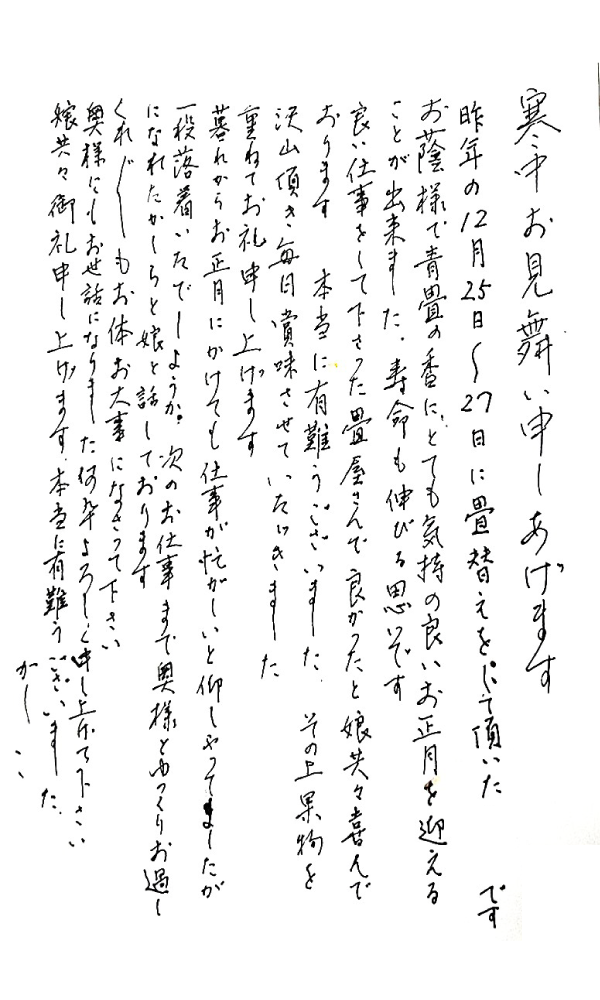 寒中お見舞い申しあげます
昨年の12月25日〜27日に畳替えをして頂いた
です
お蔭様で青畳の香に、とても気持の良いお正月を迎える
ことが出来ました。寿命も伸びる思いです
良い仕事をして下さった畳屋さんで良かったと娘共々喜んで
おります 本当に有難うございました。その上果物を
沢山頂き毎日賞味させていただきました
重ねてお礼申し上げます
暮れからお正月にかけても仕事が忙がしいと仰しゃってましたが
一段落着いたでしょうか。次のお仕事まで奥様とゆっくりお過し
になれたかしらと娘と話しております
くれ〲もお体お大事になさって下さい
奥様にもお世話になりました何卒よろしく申し上げて下さい
娘共々御礼申し上げます。本当に有難うございました。
かしこ